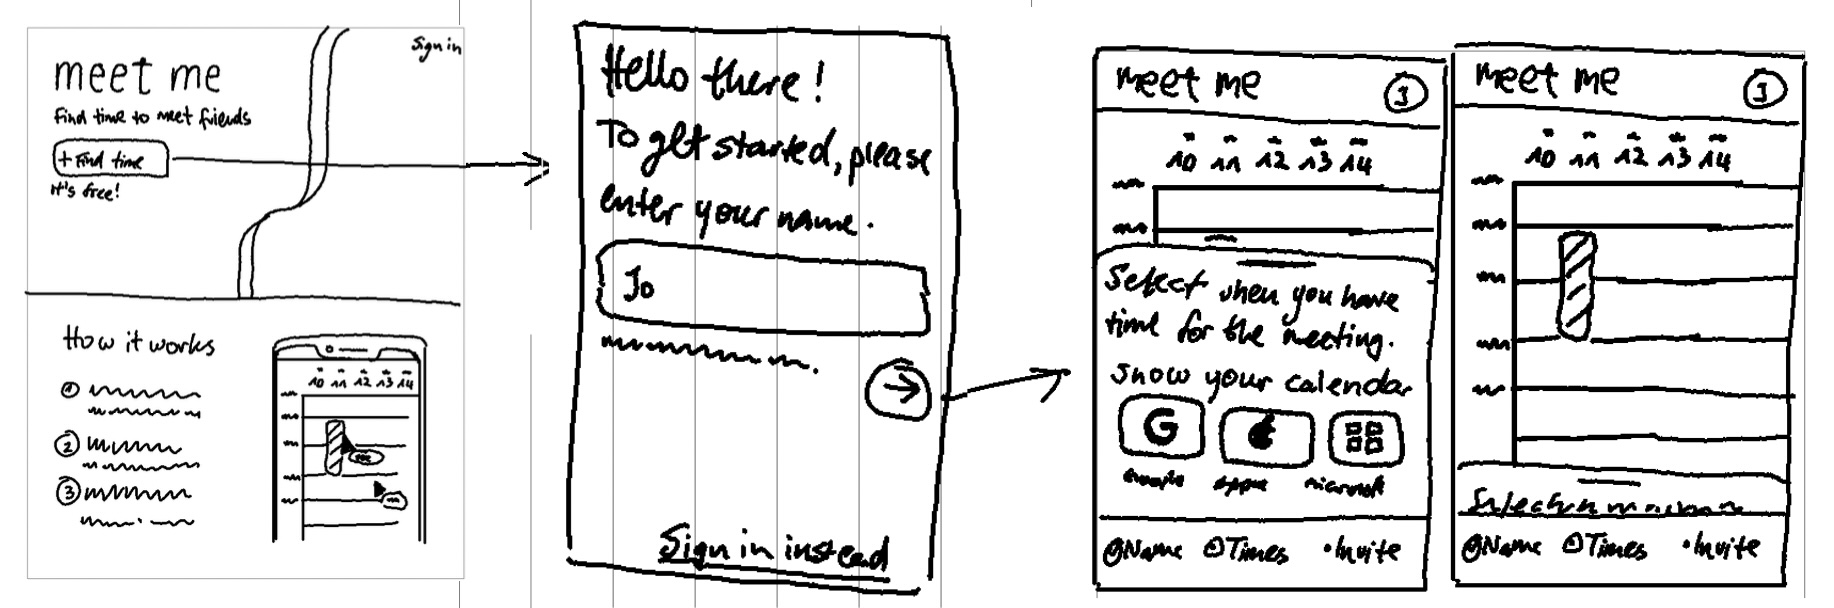 Sign in
meet me
Find time to meet friends
+ Find time
it's free!
How it works
1
2
3
10 11 12 13 14
Hello there!
To get started, please
enter your name.
Jo
Sign in instead
meet me
J
10 11 12 13 14
Select when you have
time for the meeting.
Show your calendar
G
Google Apple Microsoft
Name Times • Invite
meet me
J
10 11 12 13 14
Select
Name Times • Invite